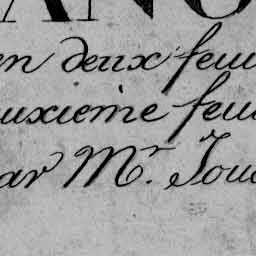 ANO
en deux feui
euxieme feui
ar Mr. Jou